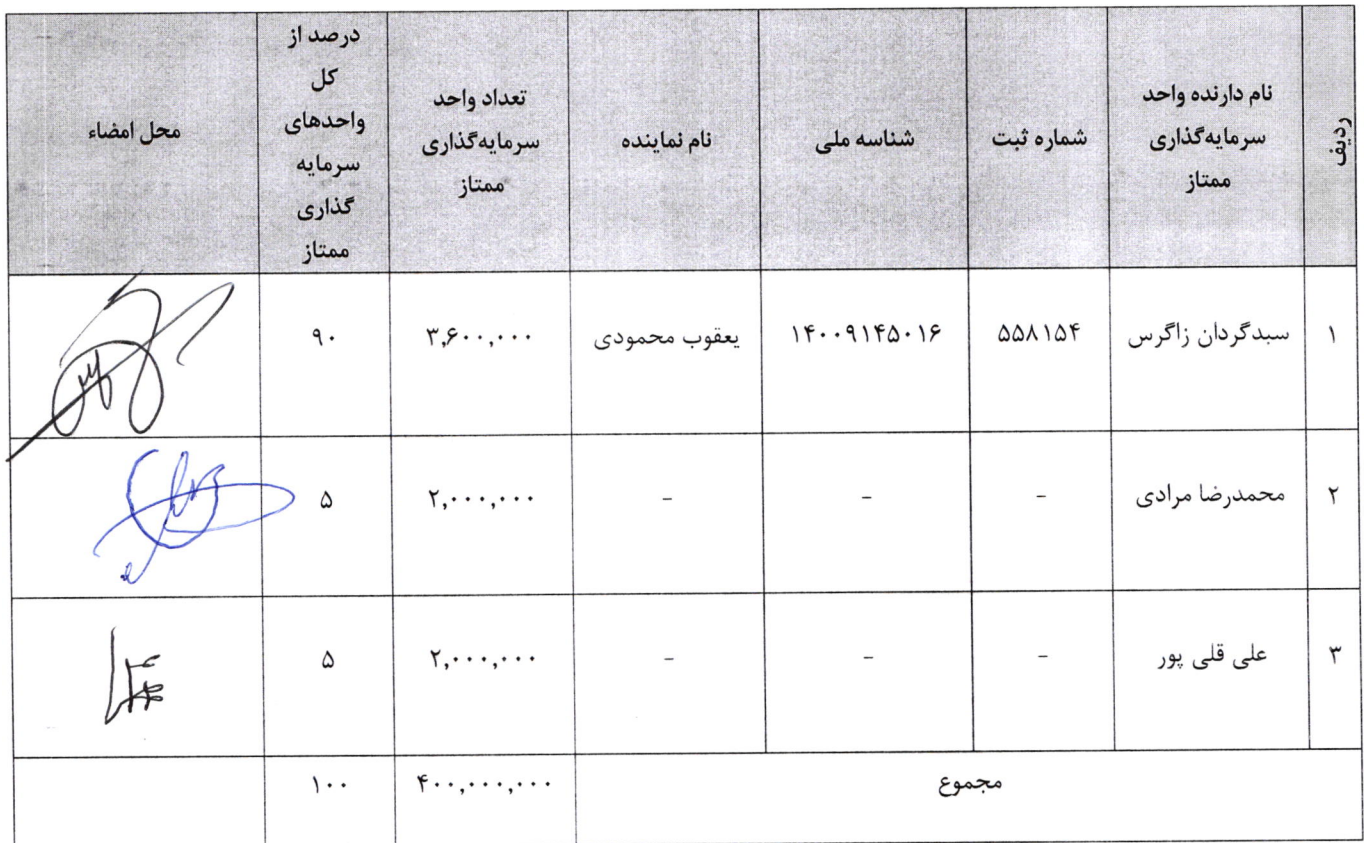 ردیف
نام دارنده واحد
سرمایه‌گذاری
ممتاز
شماره ثبت
شناسه ملی
نام نماینده
تعداد واحد
سرمایه‌گذاری
ممتاز
درصد از
کل
واحدهای
سرمایه
گذاری
ممتاز
محل امضاء
۱ سبدگردان زاگرس ۵۵۸۱۵۴ ۱۴۰۰۹۱۴۵۰۱۶ یعقوب محمودی ۳,۶۰۰,۰۰۰ ۹۰
۲ محمدرضا مرادی - - - ۲,۰۰۰,۰۰۰ ۵
۳ علی قلی پور - - - ۲,۰۰۰,۰۰۰ ۵
مجموع ۴۰۰,۰۰۰,۰۰۰ ۱۰۰